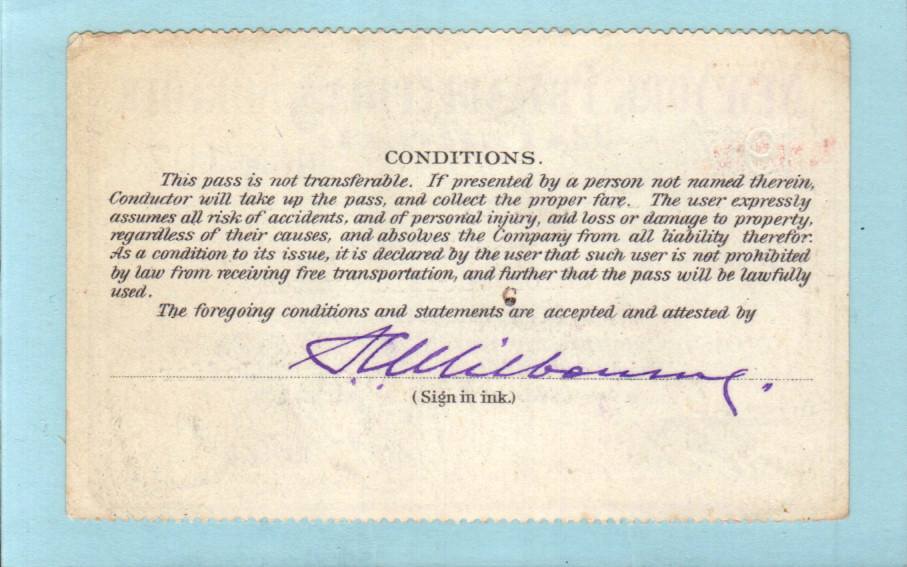 CONDITIONS.
This pass is not transferable. If presented by a person not named therein,
Conductor will take up the pass, and collect the proper fare. The user expressly
assumes all risk of accidents, and of personal injury, and loss or damage to property,
regardless of their causes, and absolves the Company from all liability therefor.
As a condition to its issue, it is declared by the user that such user is not prohibited
by law from receiving free transportation, and further that the pass will be lawfully
used.
The foregoing conditions and statements are accepted and attested by
(Sign in ink.)